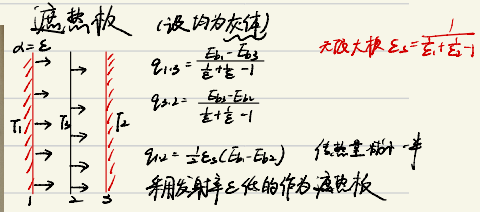 遮热板 (设均为灰体)
α=ε
无限大板 εs = 1/(1/ε1+1/ε2-1)
q1.3 = (Eb1-Eb3)/(1/ε+1/ε-1)
q3.2 = (Eb3-Eb2)/(1/ε+1/ε-1)
T1 T3 T2
q1.2 = 1/2 εs(Eb1-Eb2) 传热量缩小一半
采用发射率ε低的作为遮热板
1 2 3